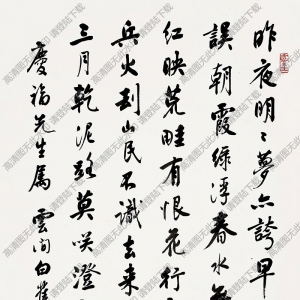 昨夜明〻夢亦誇早
誤朝霞綠浮春水無
紅映荒畦有恨花行
兵火到山民不識去来
三月乾泥路莫咲澄
慶福先生屬 雲間白雀